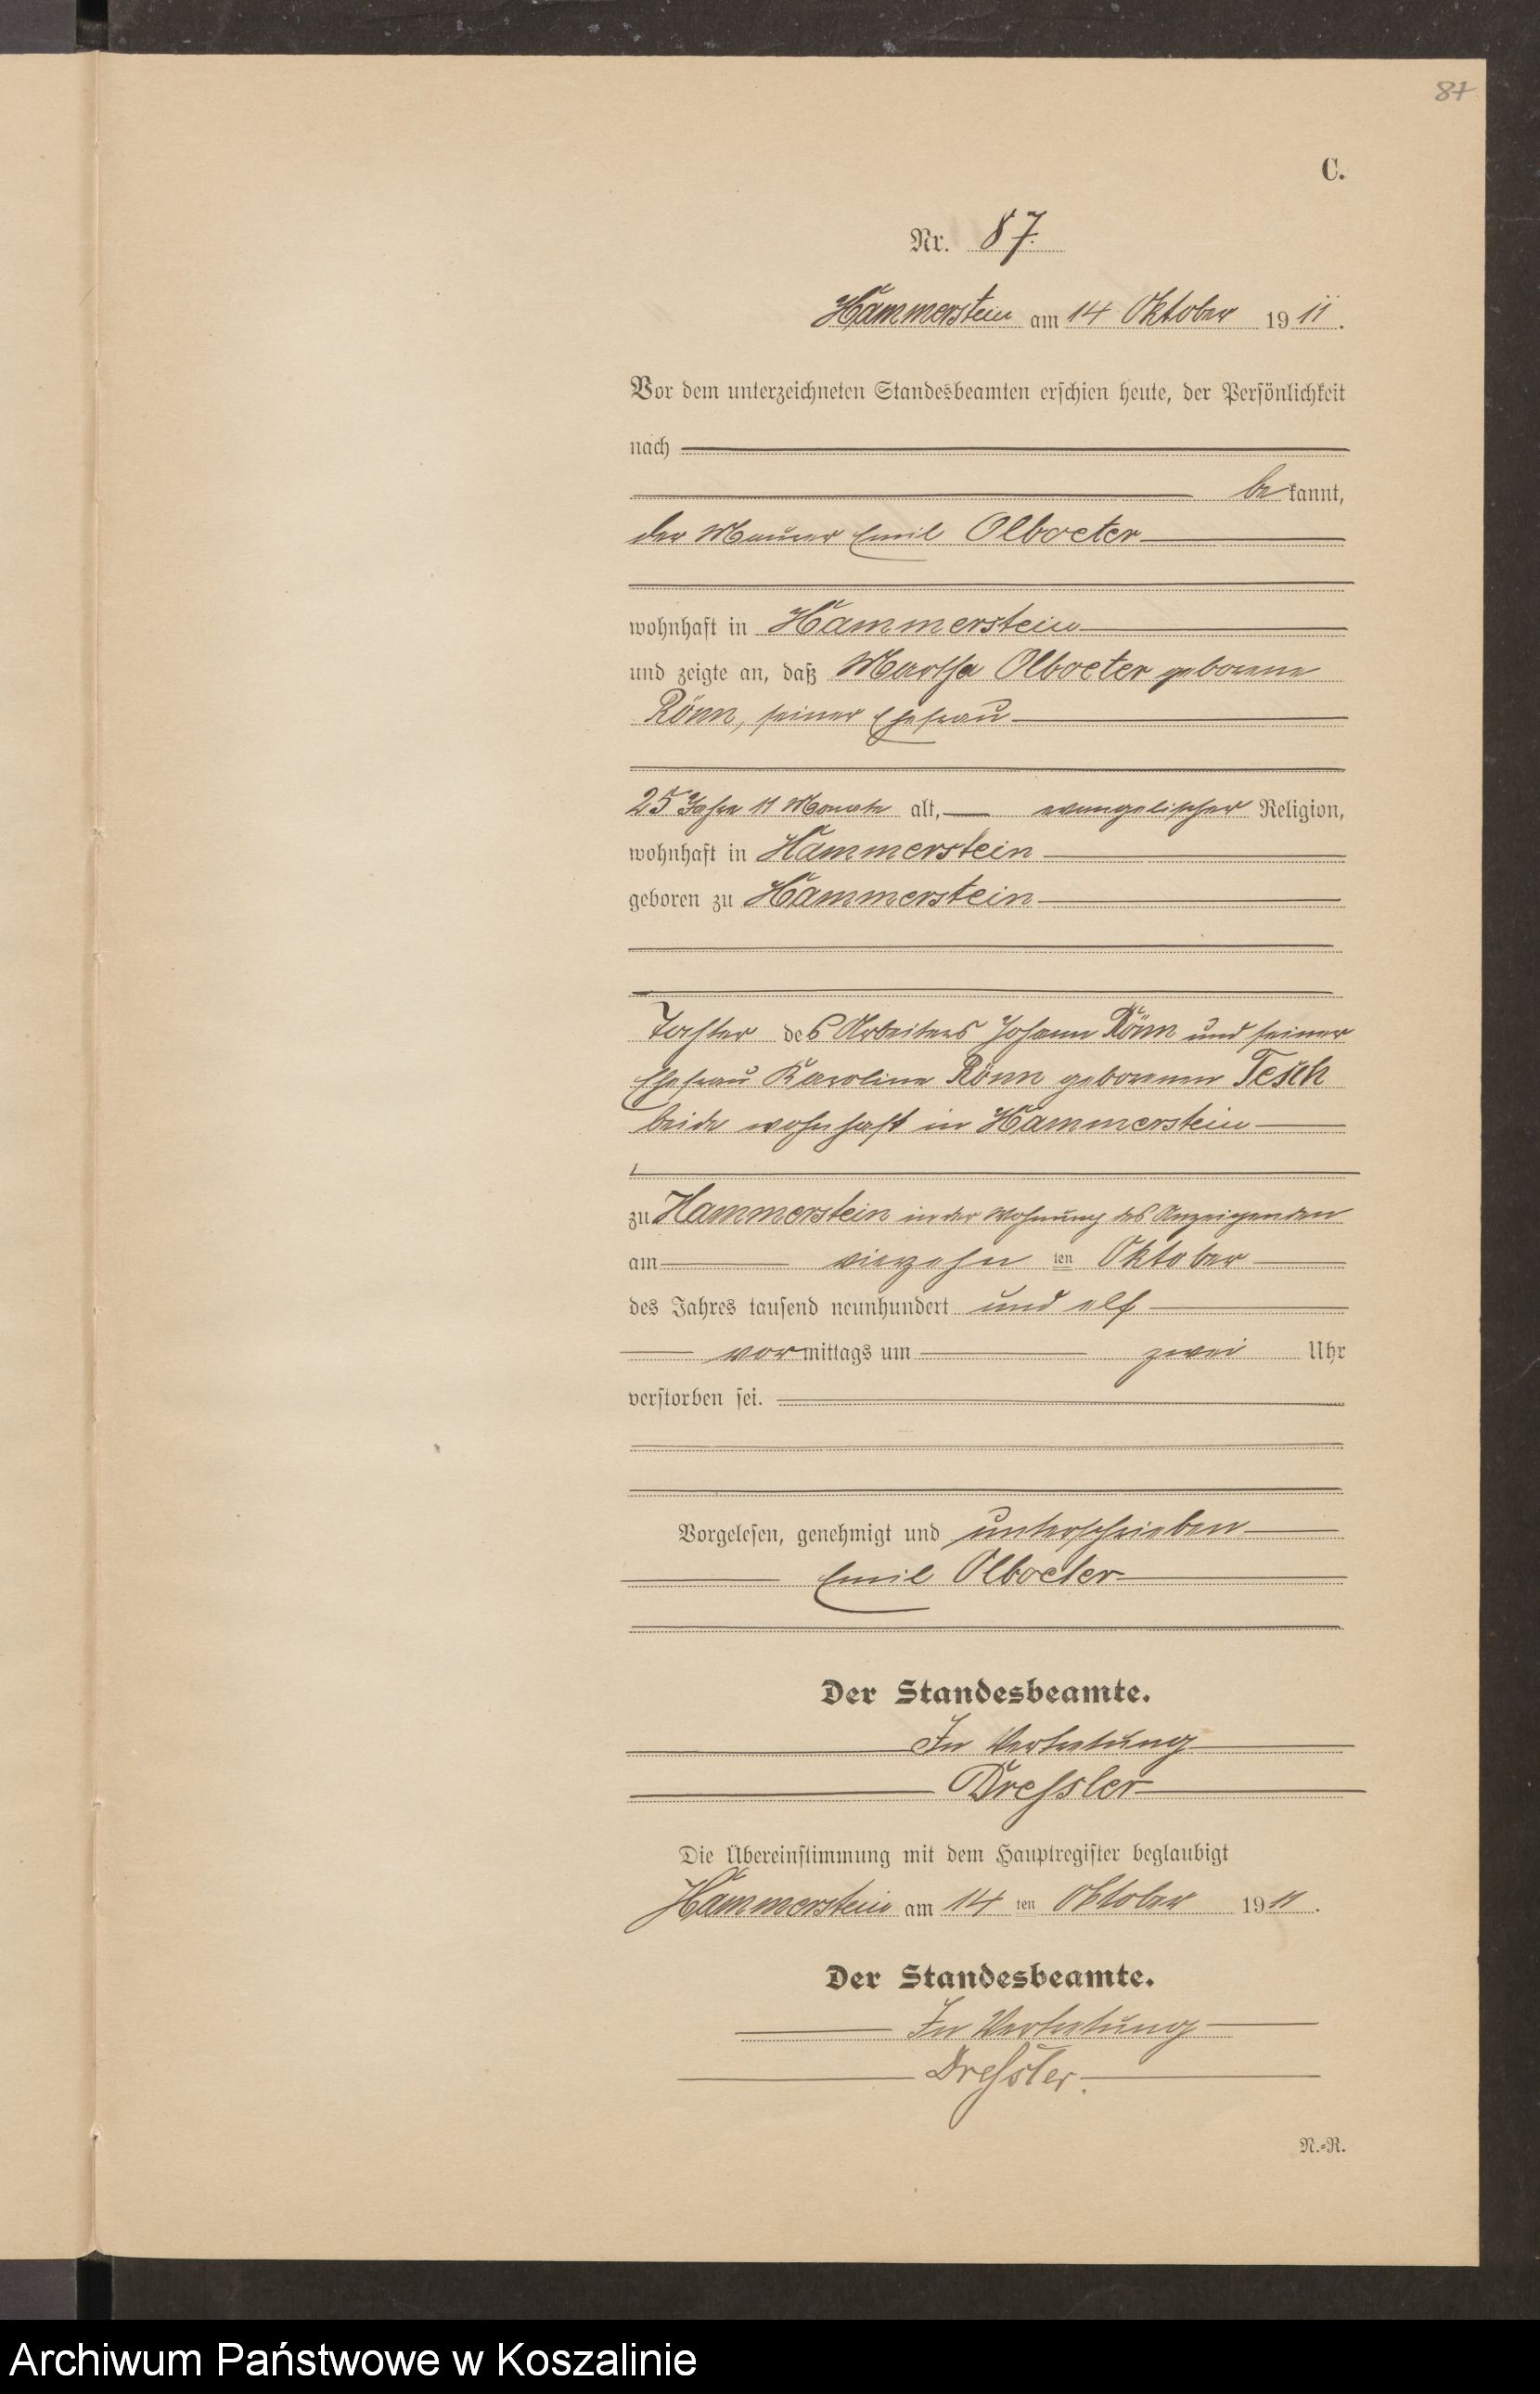 87
C.
Nr. 87.
Hammerstein am 14 Oktober 1911.
Vor dem unterzeichneten Standesbeamten erschien heute, der Persönlichkeit
nach
be kannt,
der Maurer Emil Olboeter
wohnhaft in Hammerstein
und zeigte an, daß Martha Olboeter geborene
Rönn, seiner Ehefrau
25 Jahre 11 Monate alt, evangelischer Religion,
wohnhaft in Hammerstein
geboren zu Hammerstein
Tochter des Arbeiters Johann Rönn und seiner
Ehefrau Karoline Rönn geborenen Tesch
beide wohnhaft in Hammerstein
zu Hammerstein in der Wohnung des Anzeigenden
am vierzehn ten Oktober
des Jahres tausend neunhundert und elf
vormittags um zwei Uhr
verstorben sei.
Vorgelesen, genehmigt und unterschrieben
Emil Olboeter
Der Standesbeamte.
In Vertretung
Dressler
Die Übereinstimmung mit dem Hauptregister beglaubigt
Hammerstein am 14 ten Oktober 1911.
Der Standesbeamte.
In Vertretung
Dressler.
N.-R.
Archiwum Państwowe w Koszalinie